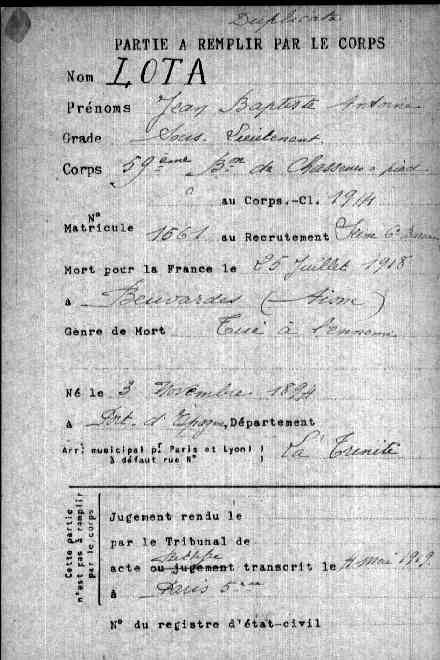 Duplicata
PARTIE A REMPLIR PAR LE CORPS
Nom LOTA
Prénoms Jean Baptiste Antoine
Grade Sous-Lieutenant
Corps 59ème Bon de Chasseurs à pied
au Corps.-Cl. 1914
N°
Matricule 1561 au Recrutement Seine 6e Bureau
Mort pour la France le 25 Juillet 1918
à Beuvardes (Aisne)
Genre de Mort Tué à l'ennemi
Né le 3 Novembre 1894
à Port. d'Espagne, Département
Arrt municipal pr Paris et Lyon) La Trinité
à défaut rue N°
Cette partie
n'est pas à remplir
par le corps
Jugement rendu le
par le Tribunal de
acte ou jugement transcrit le 4 mai 1919
à Paris 5me
N° du registre d'état-civil